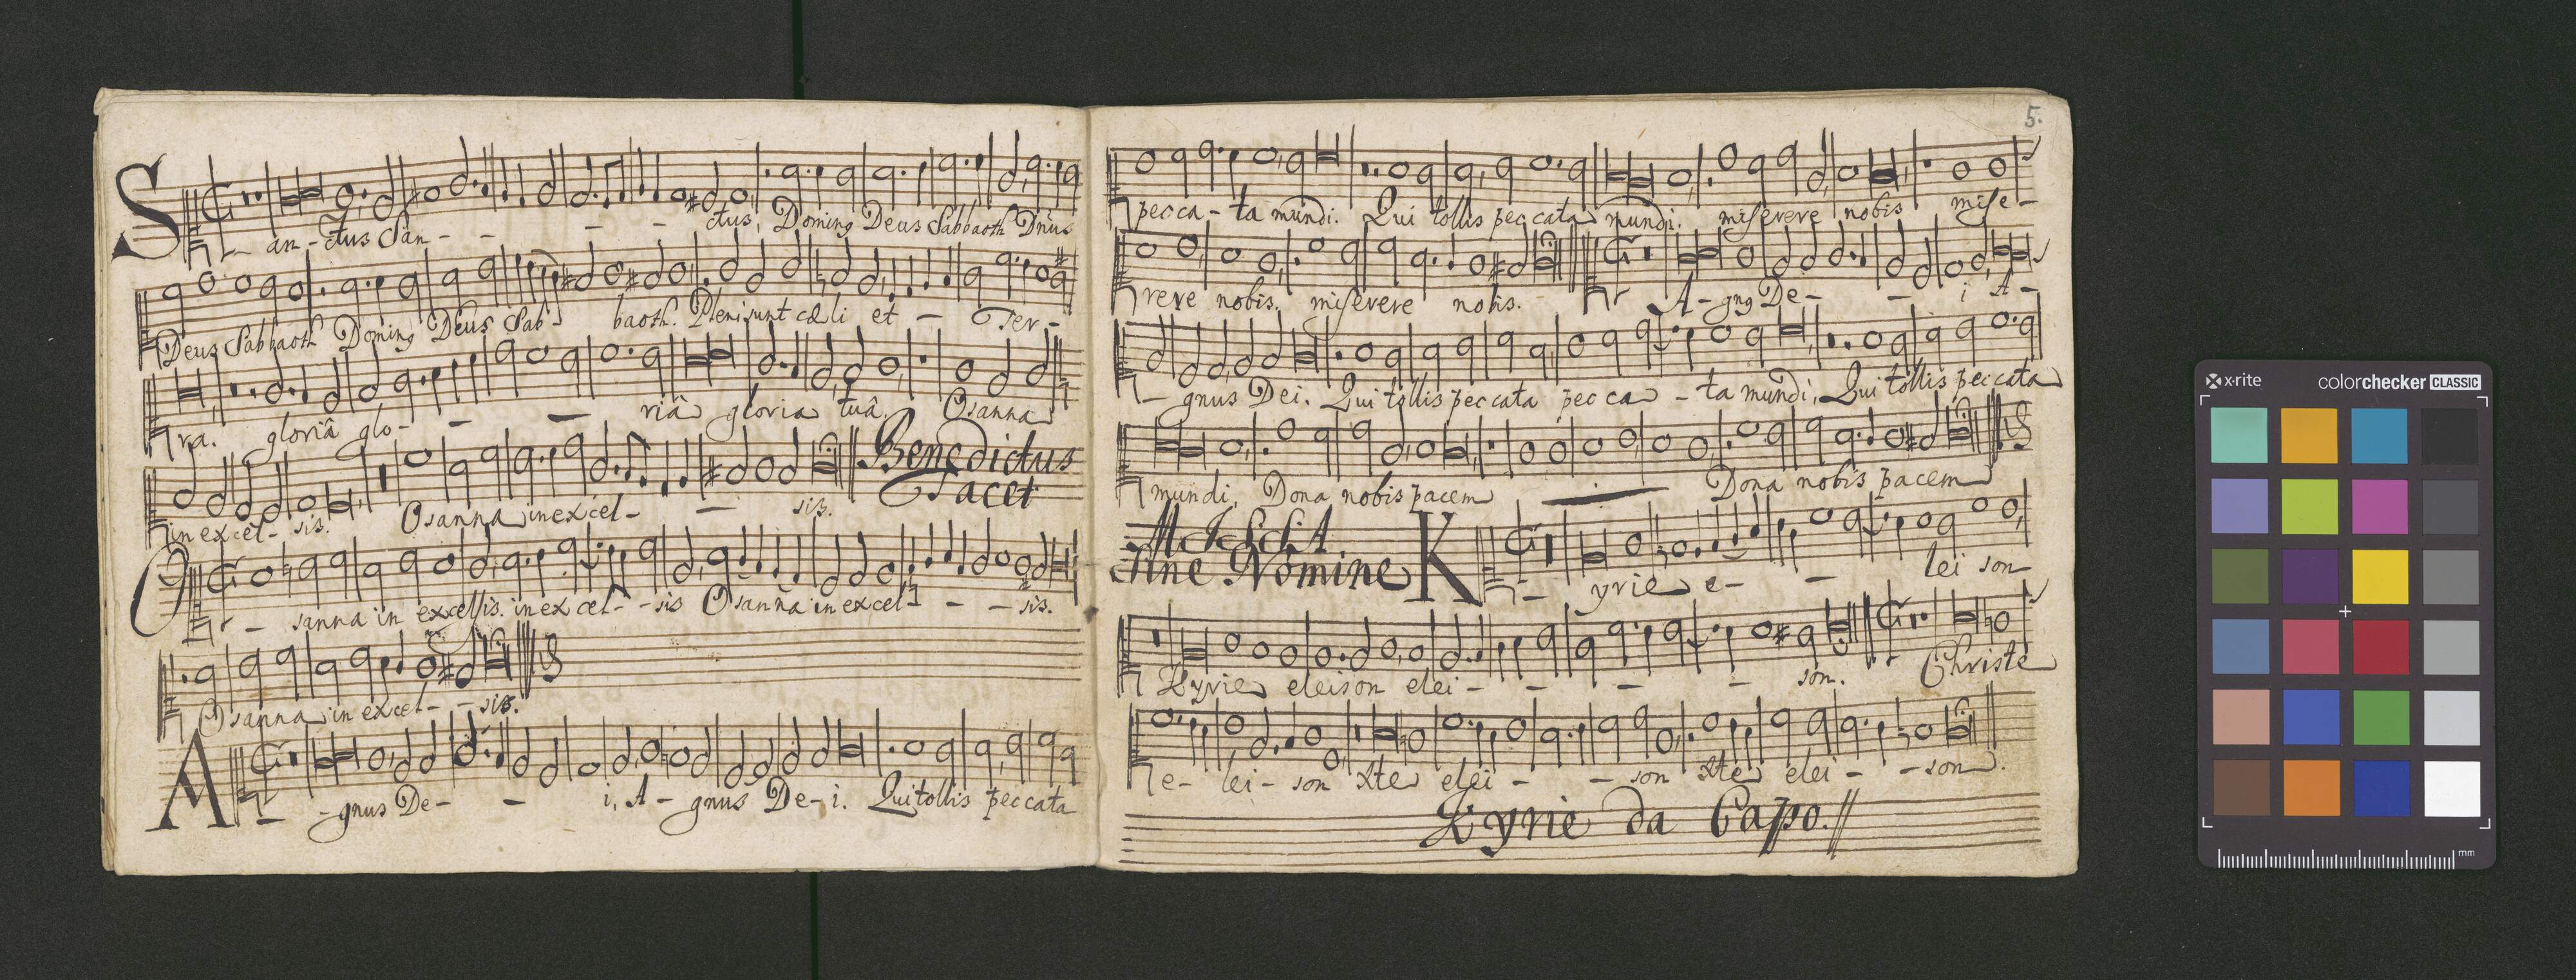 San - ctus San - - - - ctus, Doming Deus Sabbaoth Dnūs
Deus Sabbaoth Doming Deus Sab - baoth. Pleni sunt cæli et - Ter -
ra. gloriâ glo - - - riâ gloria tuâ. Osanna
in excel - sis. Osanna in excel - - sis.
Benedictus
Tacet
O - sanna in excelsis. in excel - - sis Osanna in excel - - - sis.
Osanna in excel - - sis.
A - gnus De - - i, A - gnus De - i. Qui tollis peccata
5.
pecca - ta mundi. Qui tollis peccata mundi. miserere nobis mise -
rere nobis. miserere nobis. A - gng De - - i A -
- gnus Dei. Qui tollis peccata pecca - ta mundi, Qui tollis peccata
mundi, Dona nobis pacem Dona nobis pacem
MISSA
Sine Nomine
K - yrie e - - lei son
Kyrie eleison elei - - - - son. Christe
e - lei - son Xte elei - - son Xte elei - - son.
Kyrie da Capo.
x-rite
colorchecker CLASSIC
mm